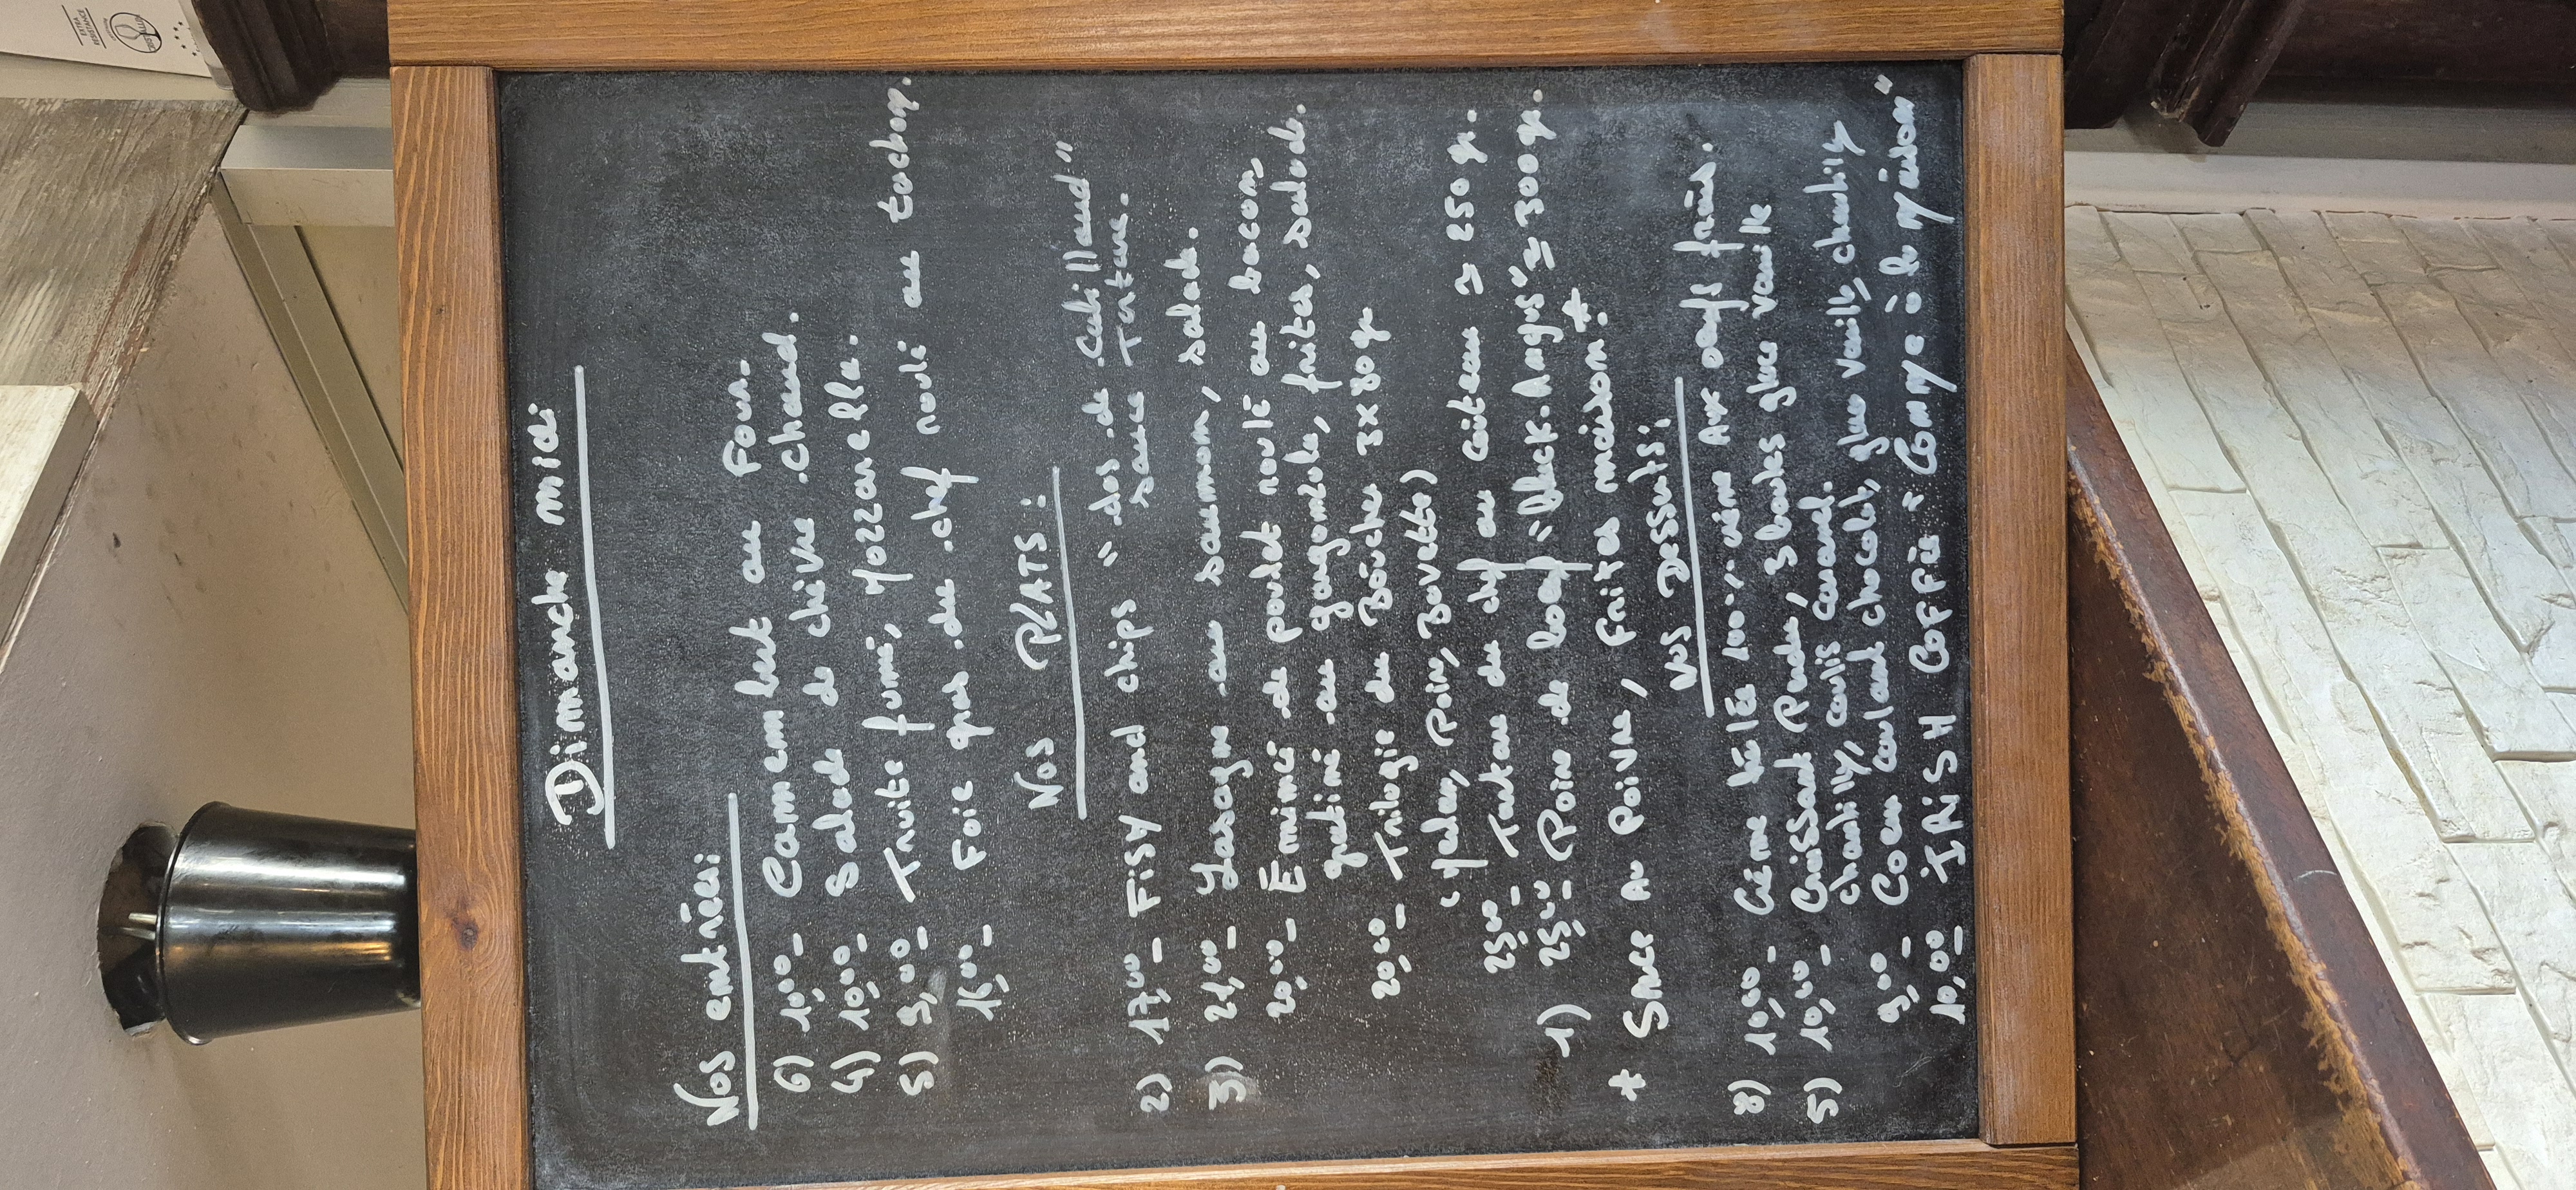 Dimanche midi:
Nos entrées:
6) 10,00 - Camembert au Four.
4) 10,00 - Salade de chèvre chaud.
5) 9,00 - Truite fumé, Mozzarella.
16,00 - Foie gras du chef roulé au torchon.
Nos PLATS:
2) 17,00 - FISH and chips "dos de Cabillaud"
sauce Tartare.
3) 21,00 - Lasagne au saumon, salade.
20,00 - Émincé de poulet roulé au bacon,
gratiné au gorgonzola, frites, salade.
20,00 - Trilogie du Boucher 3x80gr
"Merlan, Poire, Bavette)
25,00 - Tartare du chef au couteau = 250 gr.
1) 25,00 - Poire de boeuf "Black Angus" = 300gr.
* Sauce Au Poivre, Frites maison. *
Nos Desserts:
8) 10,00 - Crème brûlée 100% aux oeufs frais.
5) 10,00 - Croissant Perdu, 3 boules glace vanille
chantilly, coulis caramel.
9,00 - Coeur coulant chocolat, glace vanille, chantilly
10,00 - IRISH COFFEE "Comme à la Maison"